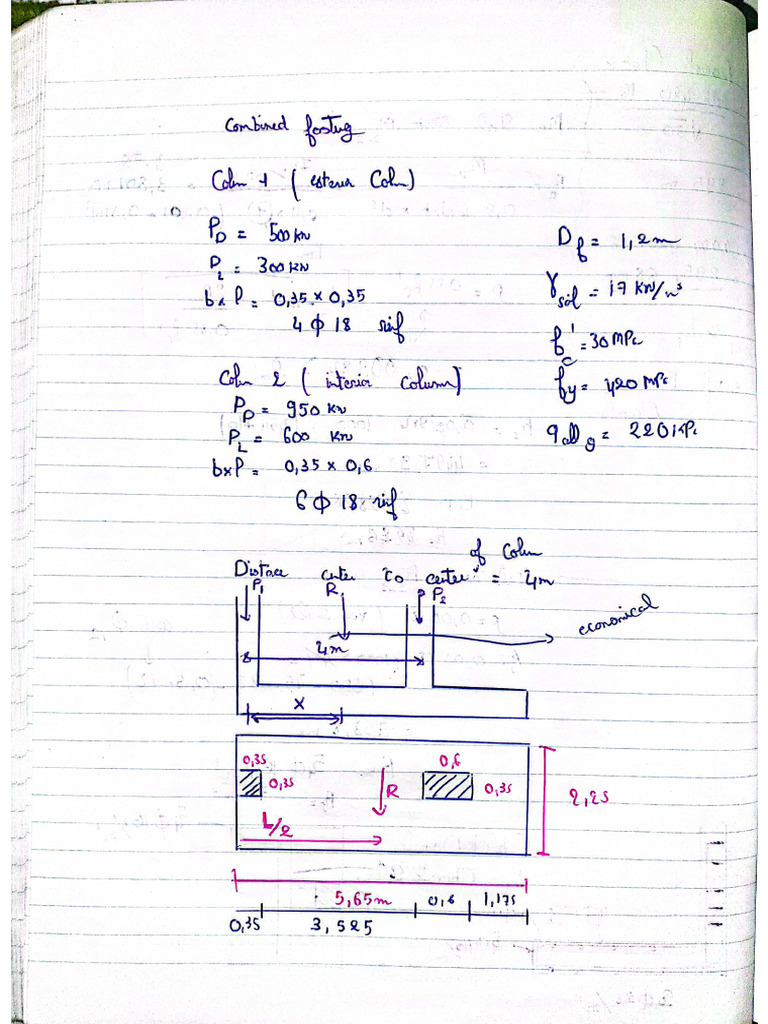 Combined footing
Colum 1 ( exterior Colum)
P_D = 500 KN
P_L = 300 KN
b x P = 0,35 x 0,35
4 ϕ 18 rinf
D_f = 1,2m
γ_soil = 17 KN/m³
f'_c = 30 MPa
fy = 420 MPa
q all_g = 220 KPa
Colum 2 ( interior Column)
P_D = 950 KN
P_L = 600 KN
bxP = 0,35 x 0,6
6 ϕ 18 rinf
Distace center to center of Colum = 4m
P_1 R P_2
economical
4m
X
0,35 0,6
0,35 R 0,35
2,25
L/2
5,65m 0,6 1,175
0,35 3,525